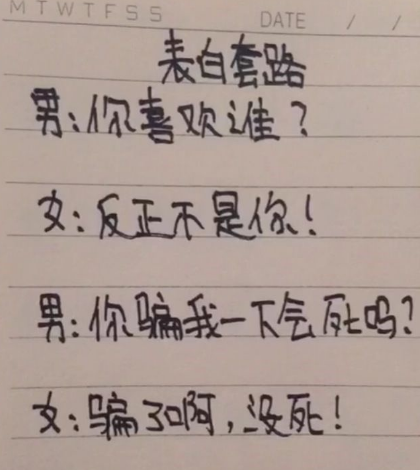 M T W T F S S DATE / /
表白套路
男:你喜欢谁?
女:反正不是你!
男:你骗我一下会死吗?
女:骗了啊,没死!